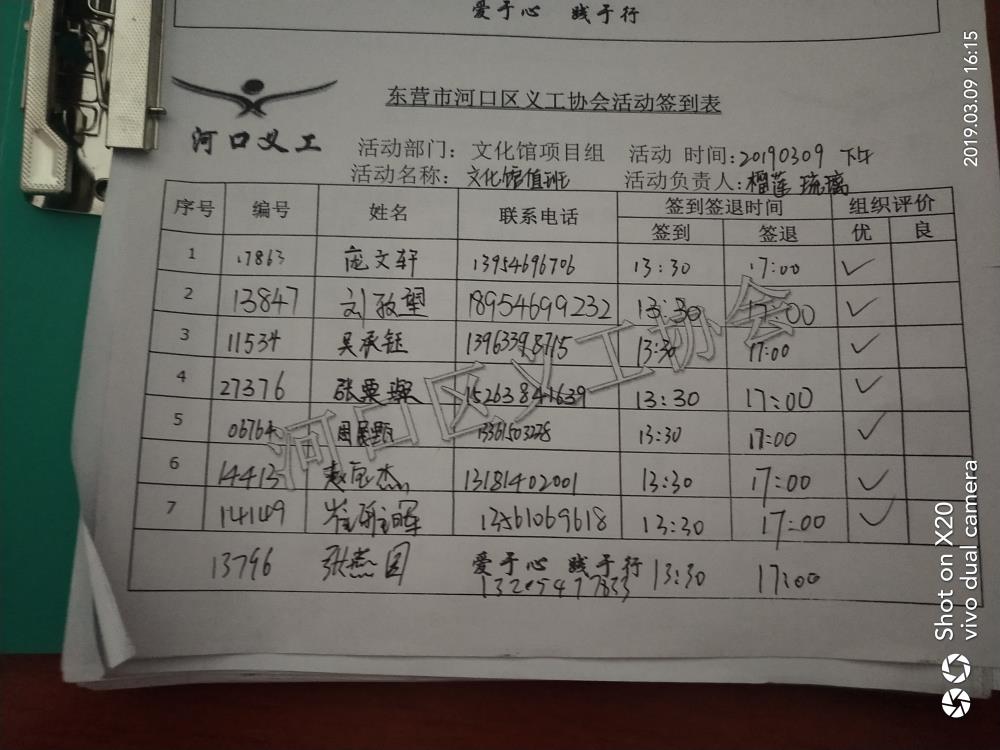 爱于心 践于行
东营市河口区义工协会活动签到表
河口义工
活动部门：文化馆项目组 活动 时间：20190309 下午
活动名称：文化馆值班 活动负责人：榴莲 琉璃
序号 编号 姓名 联系电话 签到签退时间 组织评价
签到 签退 优 良
1 17863 庞文轩 13954696706 13:30 17:00 ✓
2 13847 刘 18954699232 13:30 17:00 ✓
3 11534 吴承钰 13963398715 13:30 17:00 ✓
4 27376 张粟 15263841639 13:30 17:00 ✓
5 06764 周 13361503228 13:30 17:00 ✓
6 14413 赵 杰 13181402001 13:30 17:00 ✓
7 14149 崔 晖 13561069618 13:30 17:00 ✓
爱于心 践于行
13796 张燕 13:30 17:00
河口区义工协会
2019.03.09 16:15
Shot on X20
vivo dual camera